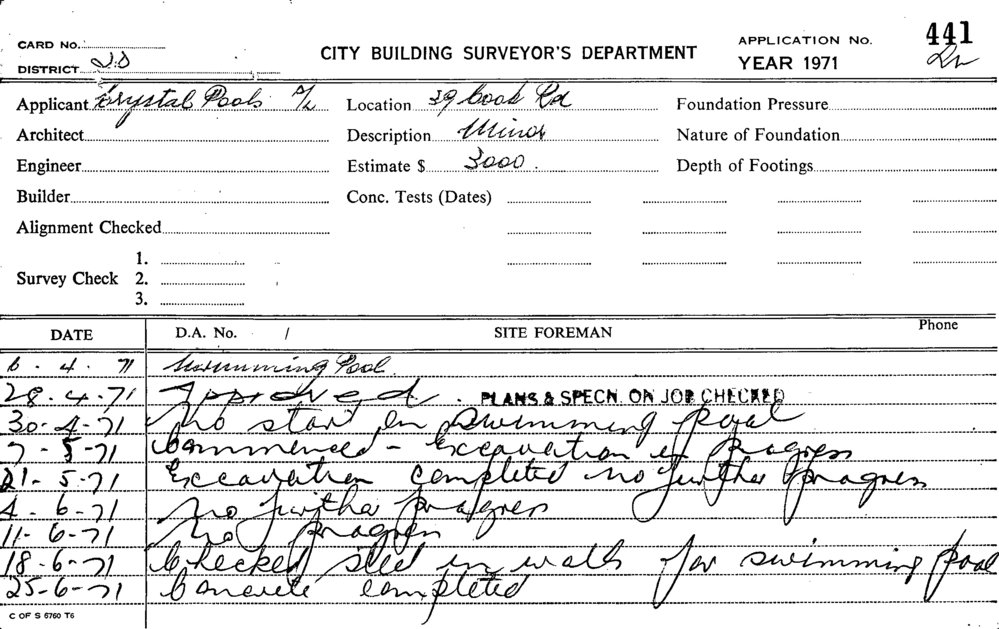 CARD No.
DISTRICT
CITY BUILDING SURVEYOR'S DEPARTMENT
APPLICATION No. 441
YEAR 1971
Applicant Crystal Pools P/L
Location 39 Cook Rd
Foundation Pressure
Architect
Description Minor
Nature of Foundation
Engineer
Estimate $ 3000.
Depth of Footings
Builder
Conc. Tests (Dates)
Alignment Checked
Survey Check 1.
2.
3.
DATE D.A. No. / SITE FOREMAN Phone
6. 4. 71 Swimming Pool
28.4.71 Approved. PLANS & SPECN. ON JOB CHECKED
30-4-71 No start on swimming pool
7-5-71 Commenced - Excavation in progress
21-5-71 Excavation completed no further progress
4-6-71 No further progress
11-6-71 No progress
18-6-71 Checked steel in walls for swimming pool
25-6-71 Concrete completed
C OF S 6760 T6